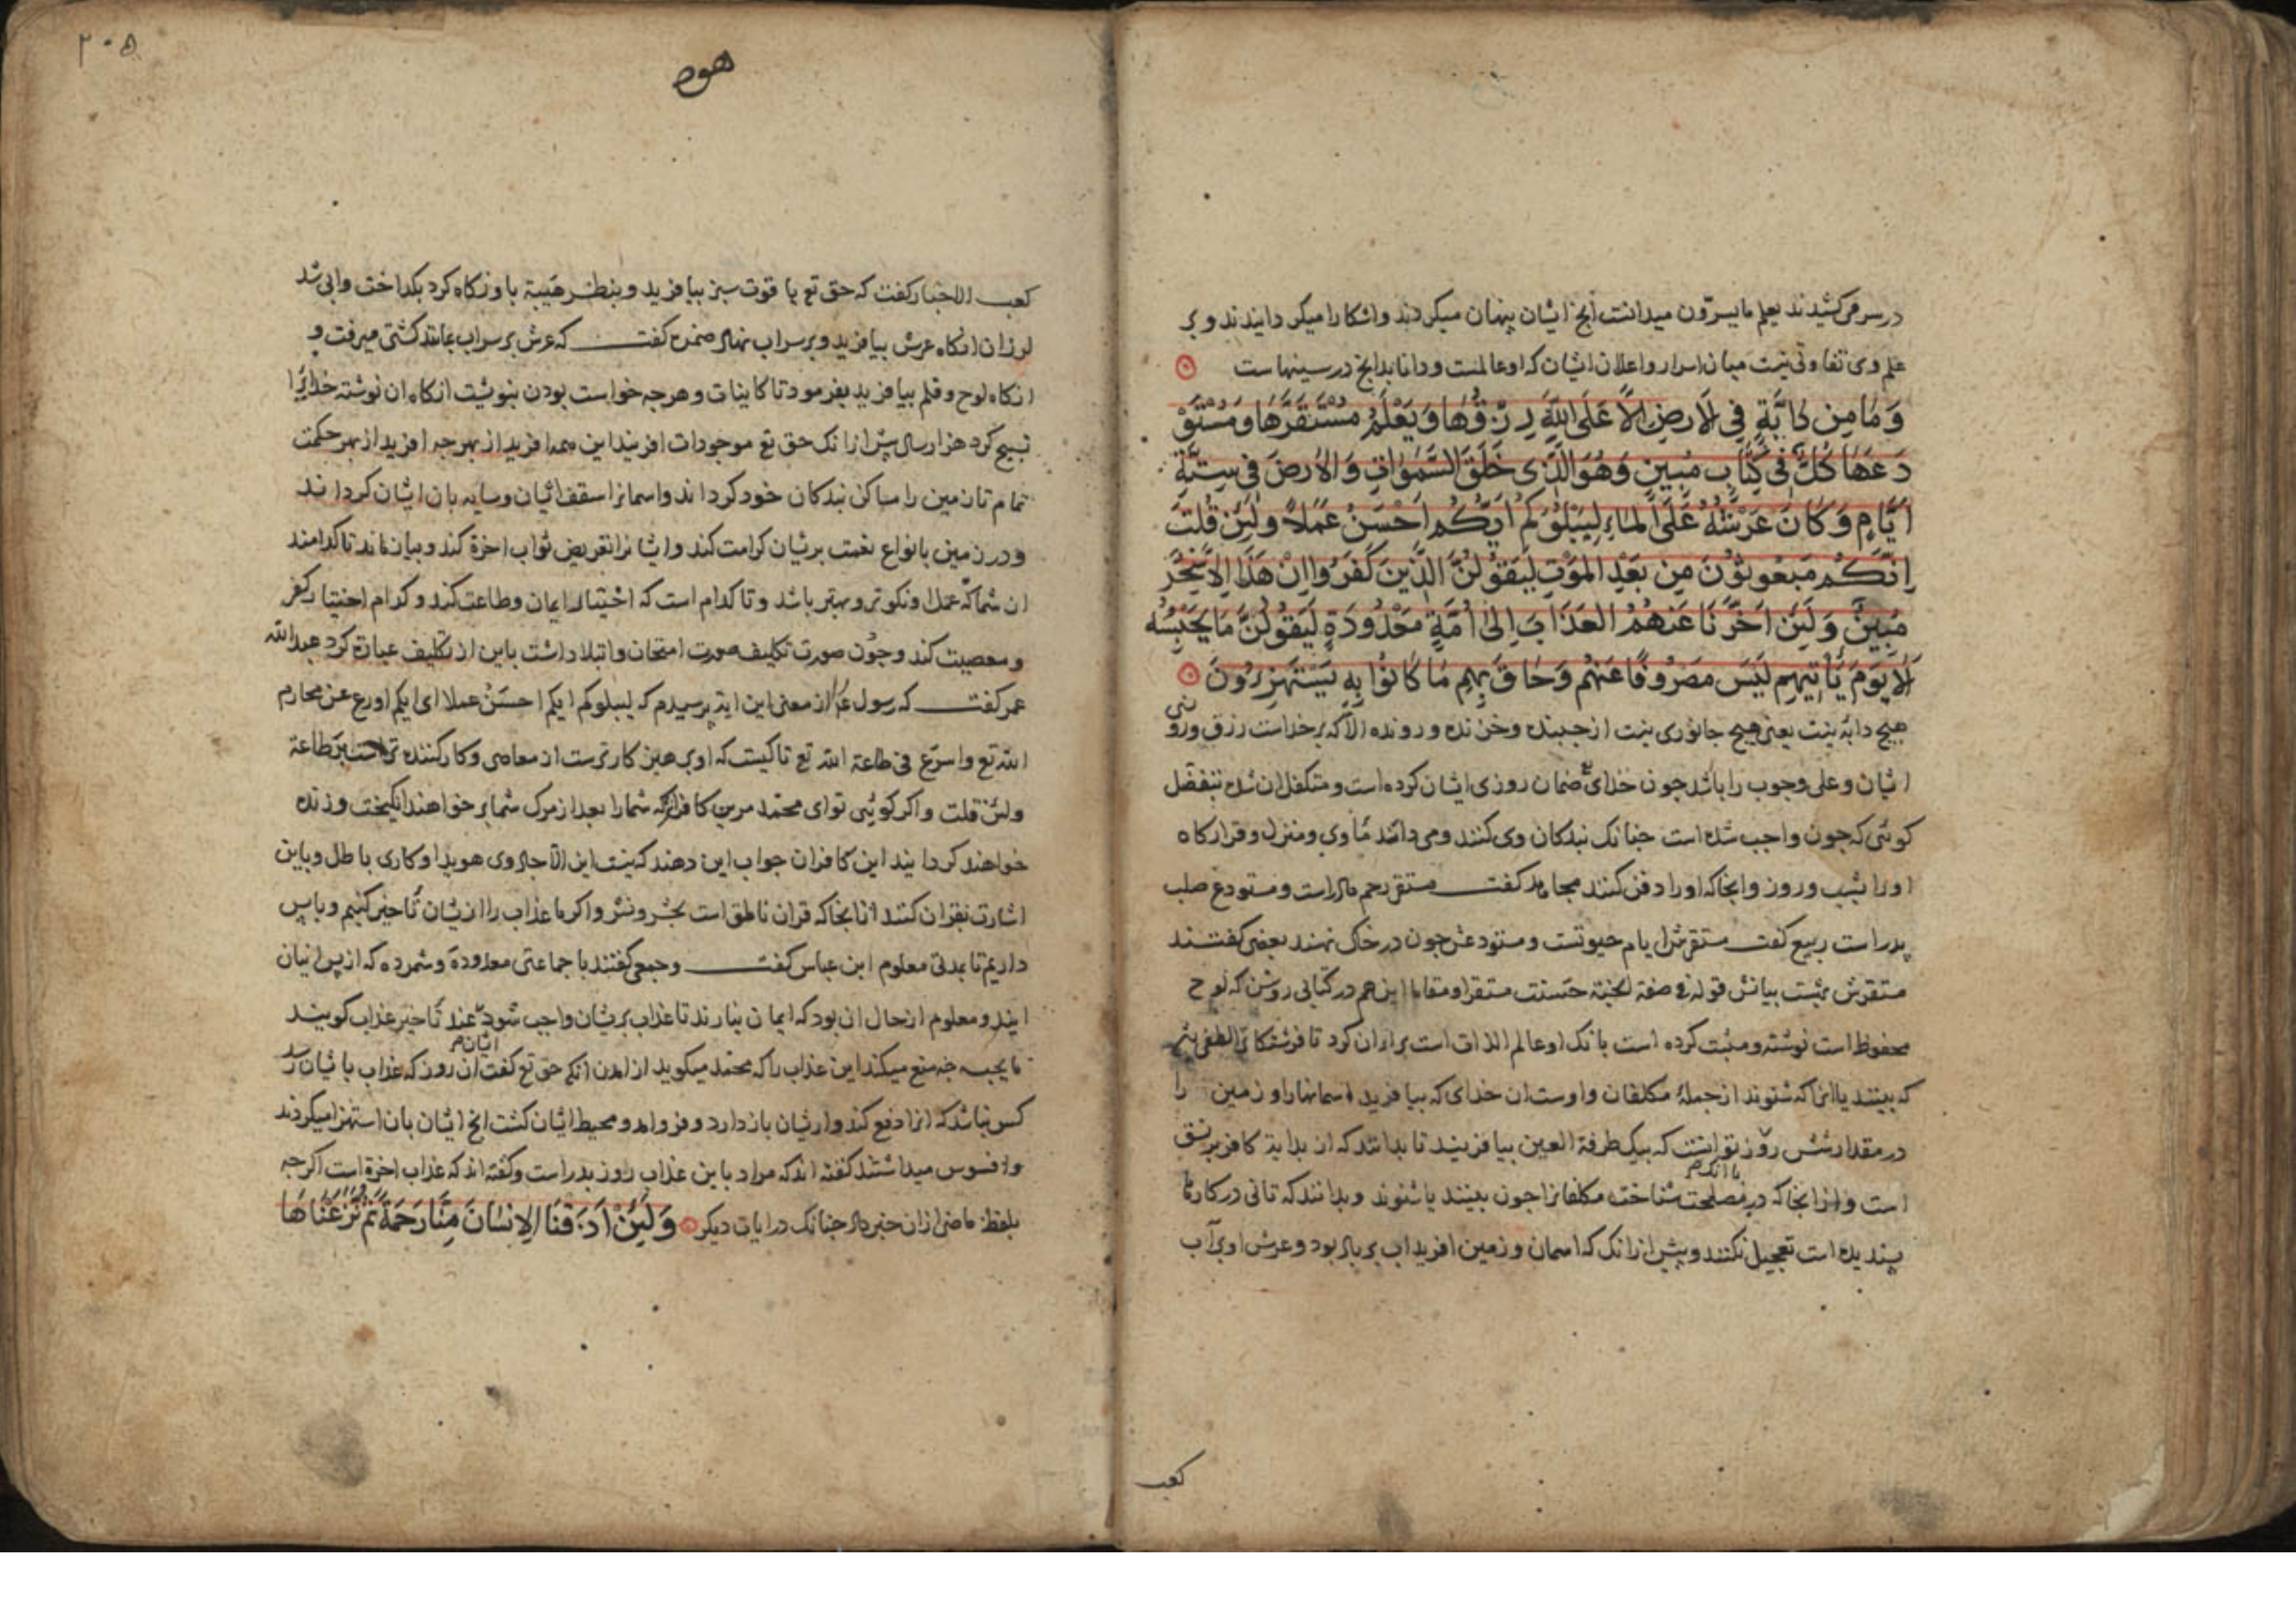 در سر می‌کشیدند یعلم ما یسرّون میدانست آنچ ایشان پنهان میکردند و اشکارا میکردانیدند و بر
علم وی تفاوتی نیست میان اسرار و اعلان ایشان که او عالمست و دانا بدانچ در سینهاست
وَمَا مِن دَابَّةٍ فِي الْاَرضِ اِلَّا عَلَى اللهِ رِزْقُهَا وَيَعْلَمُ مُسْتَقَرَّهَا وَمُسْتَوْ
دَعَهَا كُلٌّ فِي كِتَابٍ مُبِينٍ وَهُوَ الَّذِي خَلَقَ السَّمٰوٰاتِ وَالْاَرضَ فِي سِتَّةِ
اَيَّامٍ وَكَانَ عَرْشُهُ عَلَى الْمَاءِ لِيَبْلُوَكُمْ اَيُّكُمْ اَحْسَنُ عَمَلاً وَلَئِن قُلتَ
اِنَّكُمْ مَبعُوثُونَ مِن بَعْدِ الْمَوْتِ لَيَقُولُنَّ الَّذِينَ كَفَرُوا اِنْ هَذَا اِلَّا سِحْرٌ
مُبِينٌ وَلَئِن اَخَّرْنَا عَنهُمُ العَذَابَ اِلىٰ اُمَّةٍ مَعْدُودَةٍ لَيَقُولُنَّ مَا يَحْبِسُهُ
اَلَا يَوْمَ يَأتِيهِم لَيْسَ مَصْرُوفًا عَنهُم وَحَاقَ بِهِم مَا كَانُوا بِهِ يَسْتَهْزِؤُنَ
هیچ دابه نیست یعنی هیچ جانوری نیست از جنبنده و خزنده و رونده الا که بر خداست رزق و روزی
ایشان و علی وجوب را باشد چون خدای ضمان روزی ایشان کرده است و متکفل ان شده بتفضل
کوئی که چون واجب شده است چنانک بندکان وی کنند و می داند مأوی و منزل و قرارکاه
او را بشب و روز و انجا که او را دفن کنند مجاهد کفت مستقر رحم مادر است و مستودع صلب
پدر است ربیع کفت مستقرش ایام حیوتست و مستودعش چون در خاک نهند بعضی کفتند
مستقرش بهشت بیانش قوله فی صفة الجنة حسنت مستقرا ومقاما این هم در کتابی روشن که لوح
محفوظ است نوشته و مثبت کرده است بانک او عالم الذات است برای ان کرد تا فرشتکانرا لطفی
که بینند یا انرا که شنوند از جمله مکلفان و اوست ان خدای که بیافرید اسمانها را و زمین را
در مقدار شش روز توانست که بیک طرفة العین بیافریند تا بدانند که از بدایة کافر بر نسق
است و از انجا که در مصلحت شناخت مکلفانرا چون ببینند یا شنوند و بدانند که تانی در کارها
با آنک
پسندیده است تعجیل نکنند و پیش از انک که اسمان و زمین افرید اب بر باد بود و عرش او بر آب
کعب
۲۰۵
هود
کعب الاحبار کفت که حق تع یا قوت سبز بیافرید و بنظر هیبة باو نکاه کرد بکداخت و ابی شد
لرزان انکاه عرش بیافرید و بر سر اب نهاد ضمره کفت که عرش بر سر اب مانند کشتی میرفت و
انکاه لوح و قلم بیافرید بفرمود تا کاینات و هرچه خواست بودن بنوشت انکاه ان نوشته خدایرا
تسبیح کرد هزار سال پیش از انک حق تع موجودات افریند این همه افرید از بهر چه افرید از بهر حکمت
تمام تا زمین را ساکن بندکان خود کرداند و اسمانرا سقف ایشان و سایه بان ایشان کرداند
و در زمین بانواع نعمت بریشان کرامت کند و ایشانرا تعریض ثواب اخرة کند و بیازماند تا کدامند
از شما که عمل او نکوتر و بهتر باشد و تا کدام است که اختیار ایمان و طاعت کند و کدام اختیار کفر
و معصیت کند و چون صورت تکلیف صورت امتحان و ابتلا داشت باین از تکلیف عبارة کرد عبدالله
عمر کفت که رسول ع را از معنی این ایة پرسیدم که لیبلوکم ایکم احسن عملا ای ایکم اورع عن محارم
الله تع واسرع فی طاعة الله تع تا کیست که او پرهیزکارترست از معاصی و کارکننده تر است بر طاعة
ولئن قلت و اکر کوئی تو ای محمد مرین کافرانرا که شما را بعد از مرک شما بر خواهند انکیخت و زنده
خواهند کردانید این کافران جواب این دهند که نیست این الا جادوی هویدا و کاری باطل و باین
اشارت بقران کنند از انجا که قران ناطق است بحشر و نشر و اکر ما عذاب را از ایشان تأخیر کنیم و باپس
داریم تا بمدتی معلوم ابن عباس کفت و جمعی کفتند با جماعتی معدودة و شمرده که از پس ایشان
ایند و معلوم از حال ان بود که ایمان نیارند تا عذاب بریشان واجب شود عند تأخیر عذاب کویند
ایشان
ما یحبسه چه منع میکند این عذاب را که محمد میکوید از امدن انکه حق تع کفت ان روز که عذاب بایشان رسد
کس نباشد که انرا دفع کند و از ایشان باز دارد و فرو امد و محیط ایشان کشت انچ ایشان بان استهزا میکردند
و افسوس میداشتند کفته اند که مراد باین عذاب روز بدر است و کفته اند که عذاب اخرة است اکر چه
بلفظ ماضی از ان خبر داد چنانک در ایات دیکر وَلَئِنْ اَذَقْنَا الْاِنسَانَ مِنَّا رَحمَةً ثُمَّ نَزَعْنَاهَا